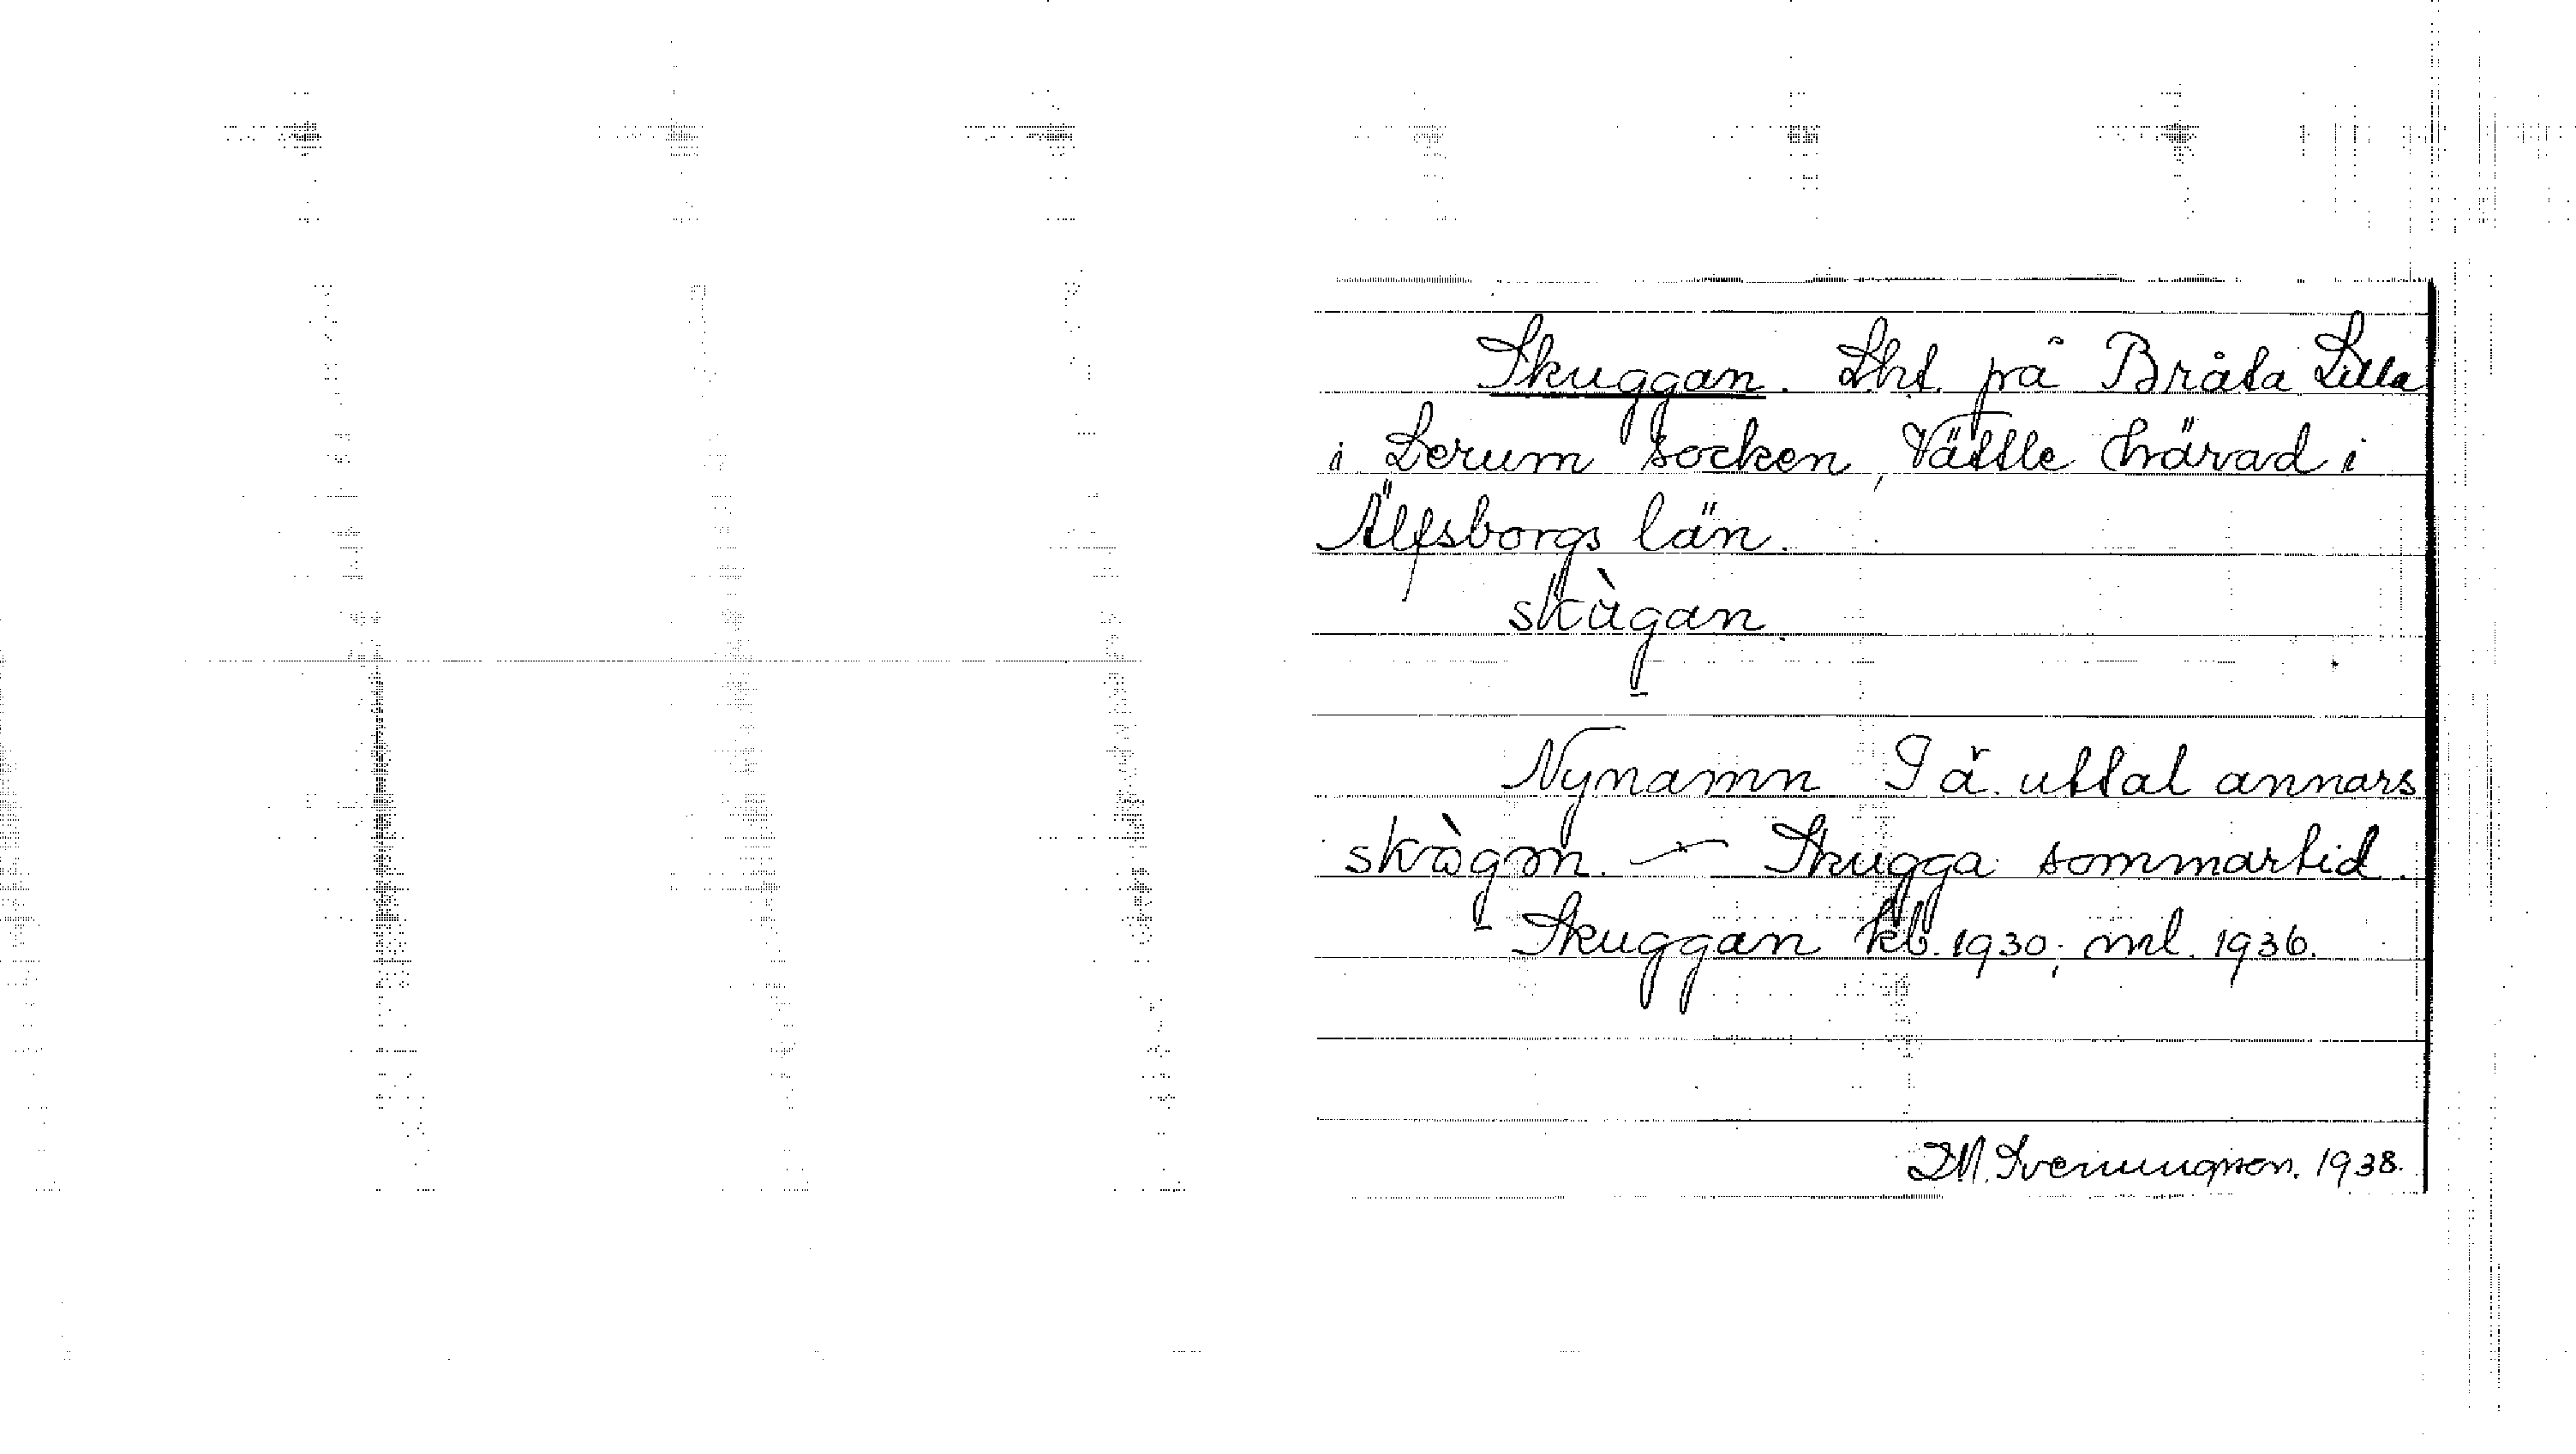 Skuggan. Lht. på Bråta Lilla
i Lerum socken, Vättle härad i
Älfsborgs län.
skùgan.
Nynamn I ä. uttal annars
skògm. — Skugga sommartid.
Skuggan kb. 1930; ml. 1936.
1938.